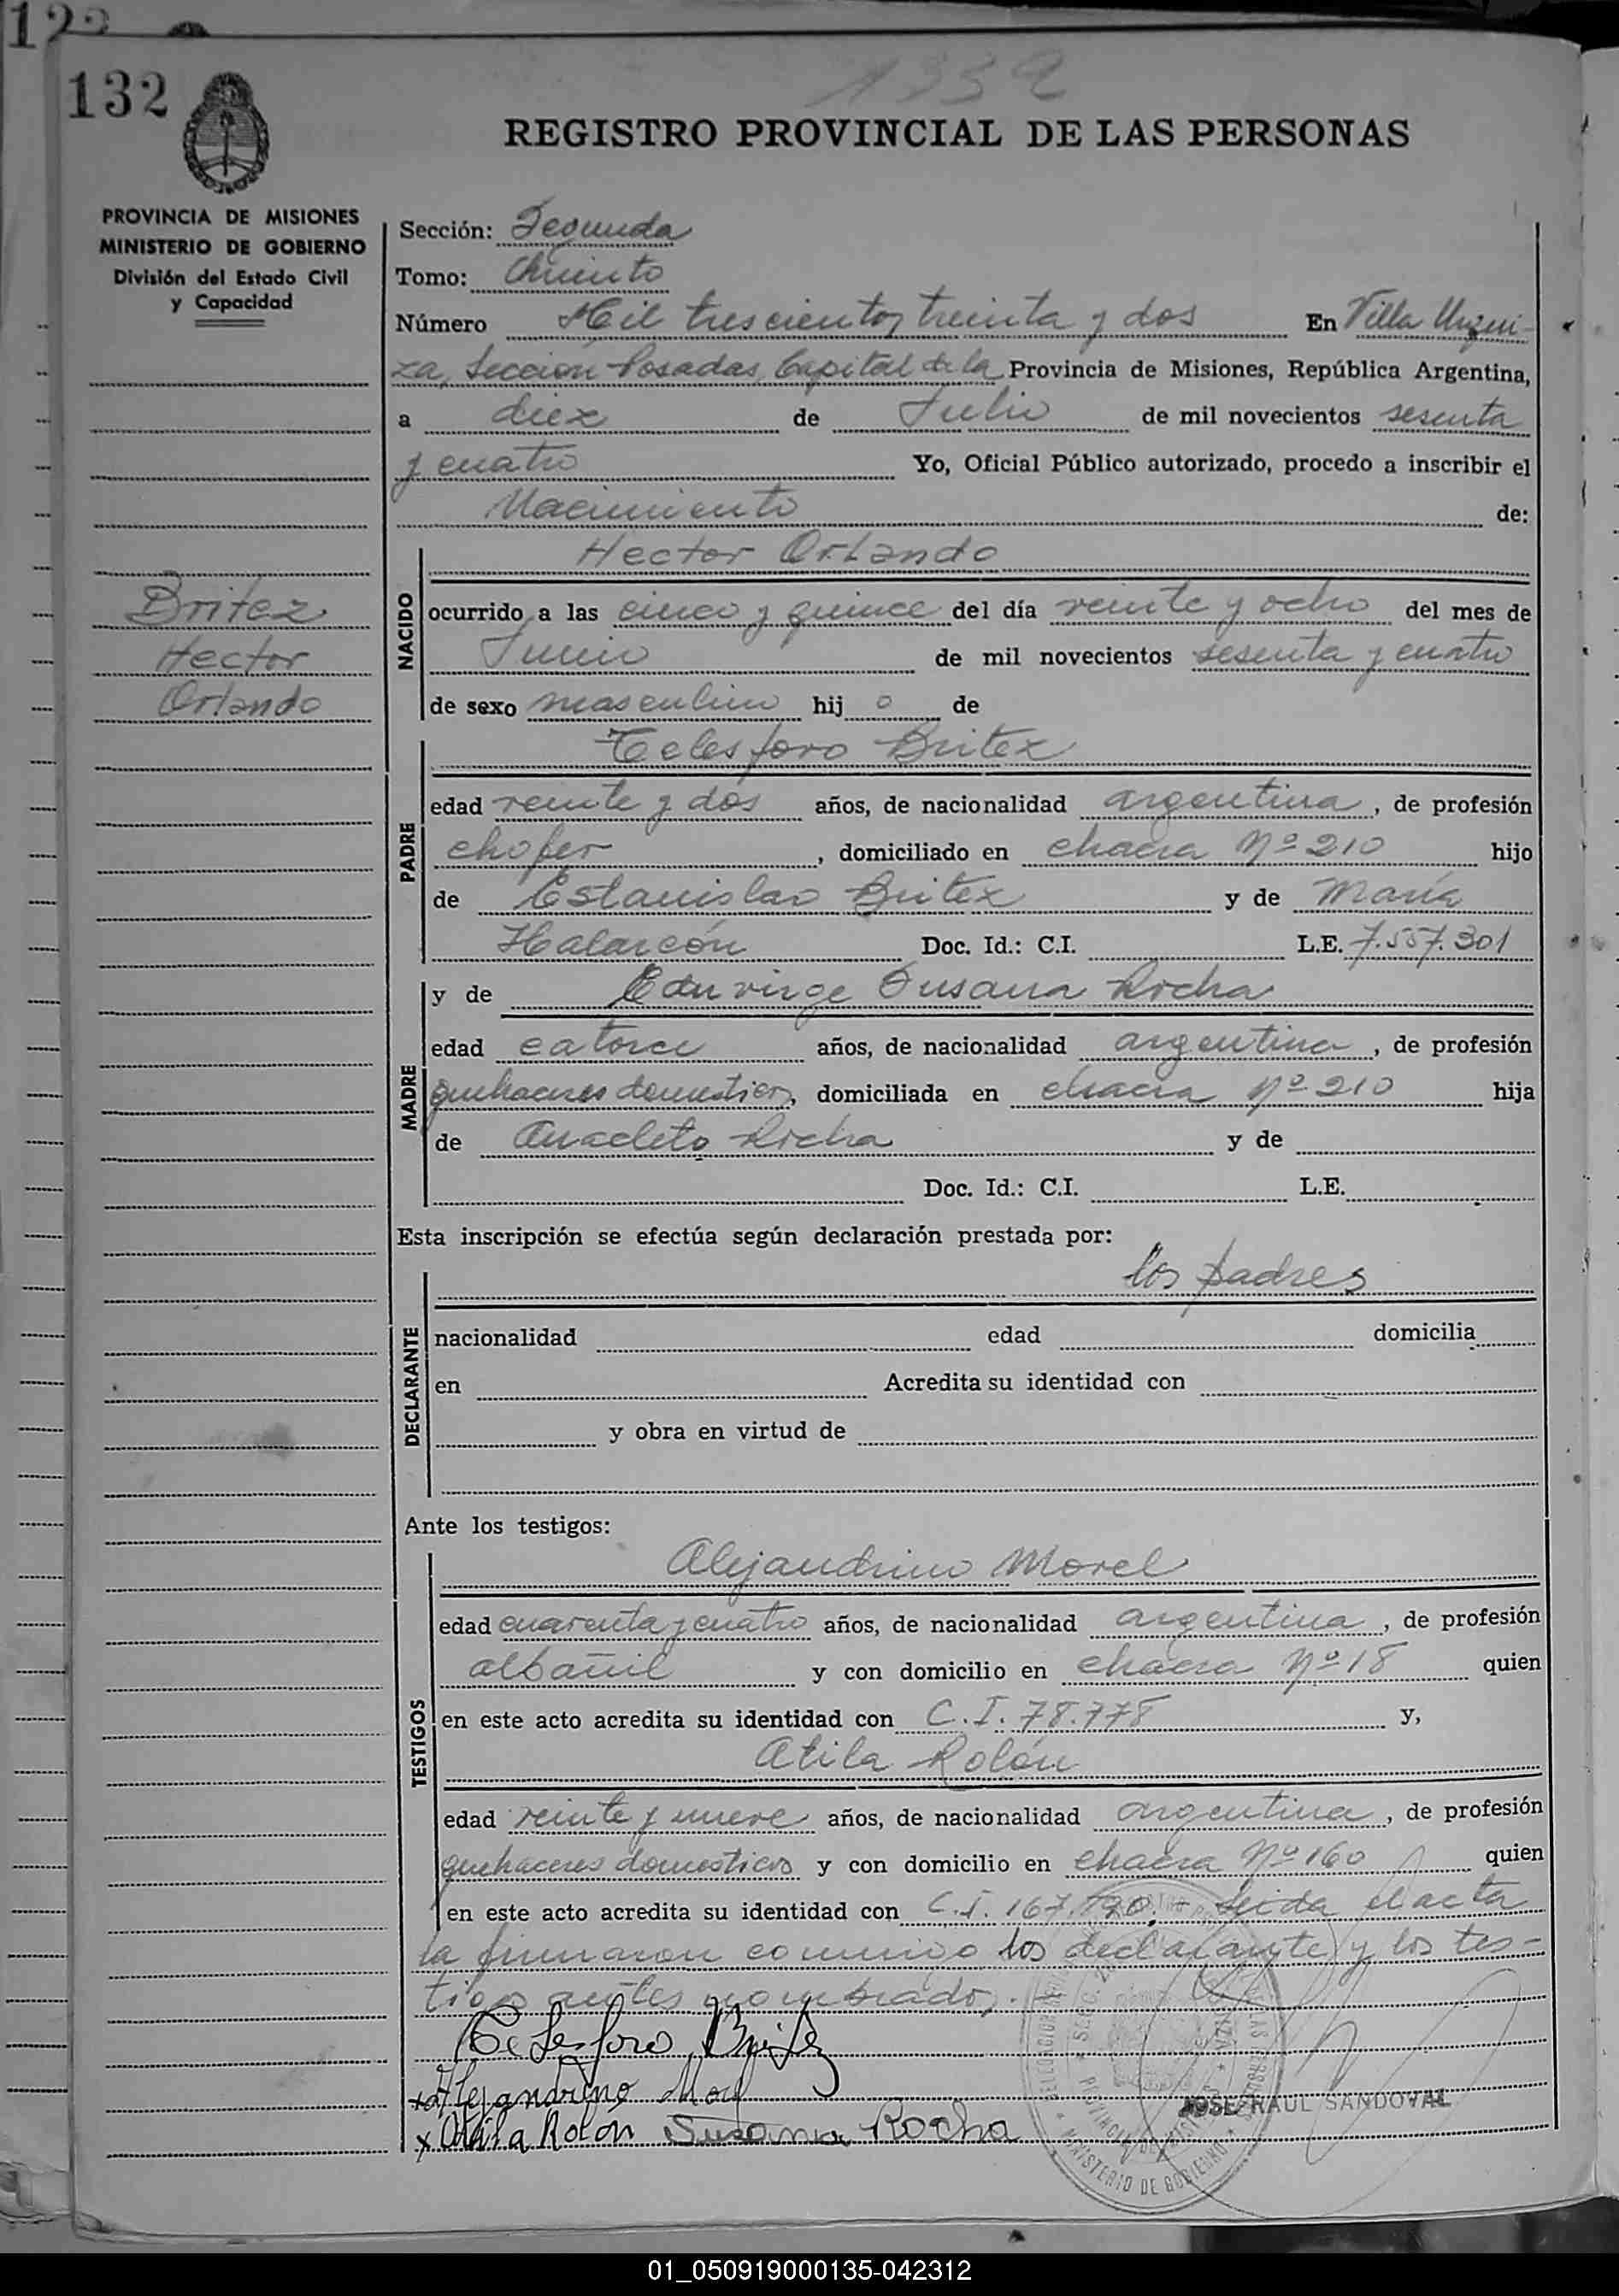 132
1332
REGISTRO PROVINCIAL DE LAS PERSONAS
PROVINCIA DE MISIONES
MINISTERIO DE GOBIERNO
División del Estado Civil
y Capacidad
Sección: Segunda
Tomo: Quinto
Número Mil trescientos treinta y dos En Villa Urqui-
za, Sección Posadas, Capital de la Provincia de Misiones, República Argentina,
a diez de Julio de mil novecientos sesenta
y cuatro Yo, Oficial Público autorizado, procedo a inscribir el
Nacimiento de:
Britez
Hector
Orlando
NACIDO
Hector Orlando
ocurrido a las cinco y quince del día veinte y ocho del mes de
Junio de mil novecientos sesenta y cuatro
de sexo masculino hij o de
PADRE
Telesforo Britez
edad veinte y dos años, de nacionalidad argentina, de profesión
chofer, domiciliado en chacra Nº 210 hijo
de Estanislao Britez y de María
Halarcón Doc. Id.: C.I. L.E. 7.557.301
MADRE
y de Eduvirge Susana Rocha
edad catorce años, de nacionalidad argentina, de profesión
quehaceres domesticos, domiciliada en chacra Nº 210 hija
de Anacleto Rocha y de
Doc. Id.: C.I. L.E.
Esta inscripción se efectúa según declaración prestada por:
DECLARANTE
los padres
nacionalidad edad domicilia
en Acredita su identidad con
y obra en virtud de
Ante los testigos:
TESTIGOS
Alejandrino Morel
edad cuarenta y cuatro años, de nacionalidad argentina, de profesión
albañil y con domicilio en chacra Nº 18 quien
en este acto acredita su identidad con C.I. 78.778 y,
Atila Rolón
edad veinte y nueve años, de nacionalidad argentina, de profesión
quehaceres domesticos y con domicilio en chacra Nº 160 quien
en este acto acredita su identidad con C.I. 167.120. Leida el acta
la firmaron conmigo los declarante y los tes-
tigos antes nombrados.
Telesforo Britez
x Alejandrino Morel
x Atila Rolon Susana Rocha
JOSE RAUL SANDOVAL
MINISTERIO DE GOBIERNO
01_050919000135-042312